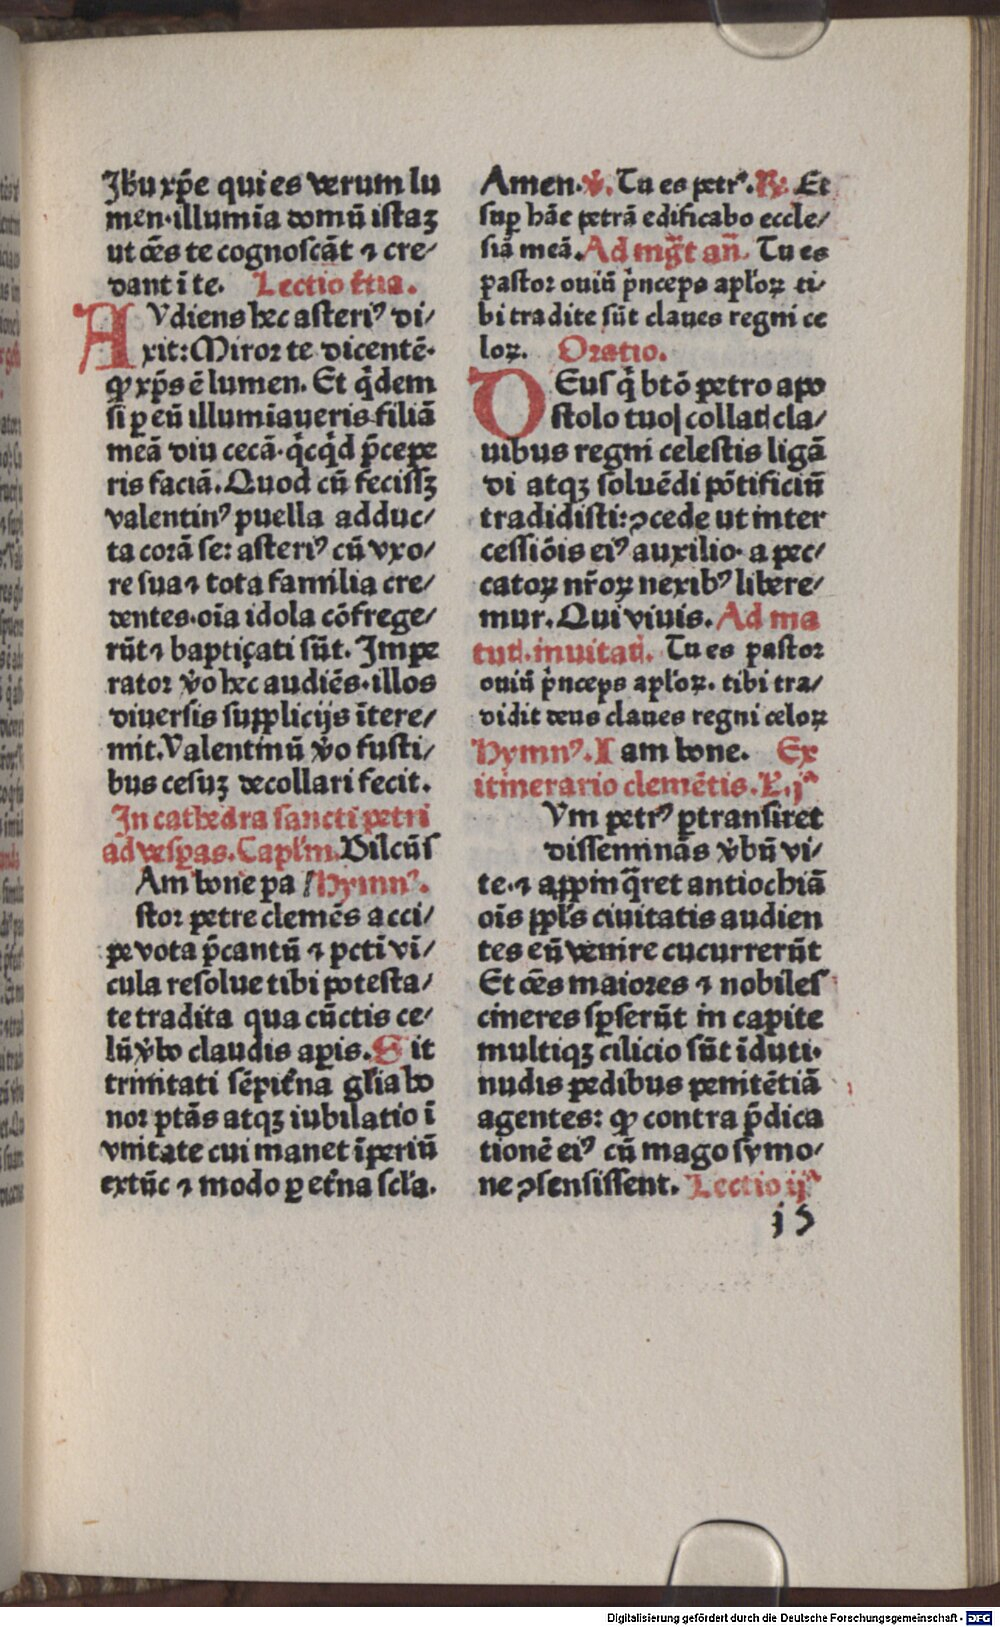 Jh̄u xp̄e qui es verum lu
men·illumīa domū istaꝫ
ut oēs te cognoscāt ⁊ cre⸗
dant ī te. Lectio t̄tia.
AVdiens hec asteriꝰ di⸗
xit: Miror te dicentē·
ꝙ xp̄s ē lumen. Et q̇dem
si ꝑ eū illumīaueris filiā
meā diu cecā·q̇cq̇d p̄cepe
ris faciā. Quod cū fecissꝫ
valentinꝰ puella adduc⸗
ta corā se: asteriꝰ cū vxo⸗
re sua ⁊ tota familia cre⸗
dentes·oīa idola cōfrege⸗
rūt ⁊ baptiçati sūt. Impe
rator v̊o hec audiēs·illos
diuersis supplicijs ītere⸗
mit. Valentinū v̊o fusti⸗
bus cesuꝫ decollari fecit.
In cathedra sancti petri
ad vesꝑas. Capl̄m. Vilcūs
Am bone pa / Hymnꝰ.
stor petre clemēs acci⸗
pe vota p̄cantū ⁊ pct̄i vī⸗
cula resolue tibi potesta⸗
te tradita qua cūctis ce⸗
lū v̊bo claudis aꝑis. Sit
trinitati sēpit̄na gl̄ia ho
nor ptās atqꝫ iubilatio ī
vnitate cui manet īperiū
extūc ⁊ modo ꝑ et̄na scl̄a.
Amen. ℣. Tu es petrꝰ. ℟. Et
suꝑ hāc petrā edificabo eccle⸗
siā meā. Ad mḡt an̄. Tu es
pastor ouiū ṗnceps apl̄oꝝ ti⸗
bi tradite sūt claues regni ce
loꝝ. Oratio.
DEus q̇ btō petro apo
stolo tuo| collatꝭ cla⸗
uibus regni celestis ligā
di atqꝫ soluēdi pōtificiū
tradidisti: ꝯcede ut inter
cessiōis eiꝰ auxilio· a pec⸗
catoꝝ nr̄oꝝ nexibꝰ libere⸗
mur. Qui viuis. Ad ma
tutꝭ. inuitatꝭ. Tu es pastor
ouiū ṗnceps apl̄oꝝ. tibi tra⸗
didit deus claues regni celoꝝ
Hymnꝰ. I am bone. Ex
itinerario clemētis. L. jª
Vm petrꝰ ꝑtransiret
disseminās v̊bū vi⸗
te·⁊ appinq̄ret antiochiā
oīs ppl̄s ciuitatis audien
tes eū venire cucurrerūt
Et oēs maiores ⁊ nobiles
cineres sꝑserūt in capite
multiqꝫ cilicio sūt īduti·
nudis pedibus penitētiā
agentes: ꝙ contra p̄dica
tionē eiꝰ cū mago symo⸗
ne ꝯsensissent. Lectio ijª
15
Digitalisierung gefördert durch die Deutsche Forschungsgemeinschaft - DFG